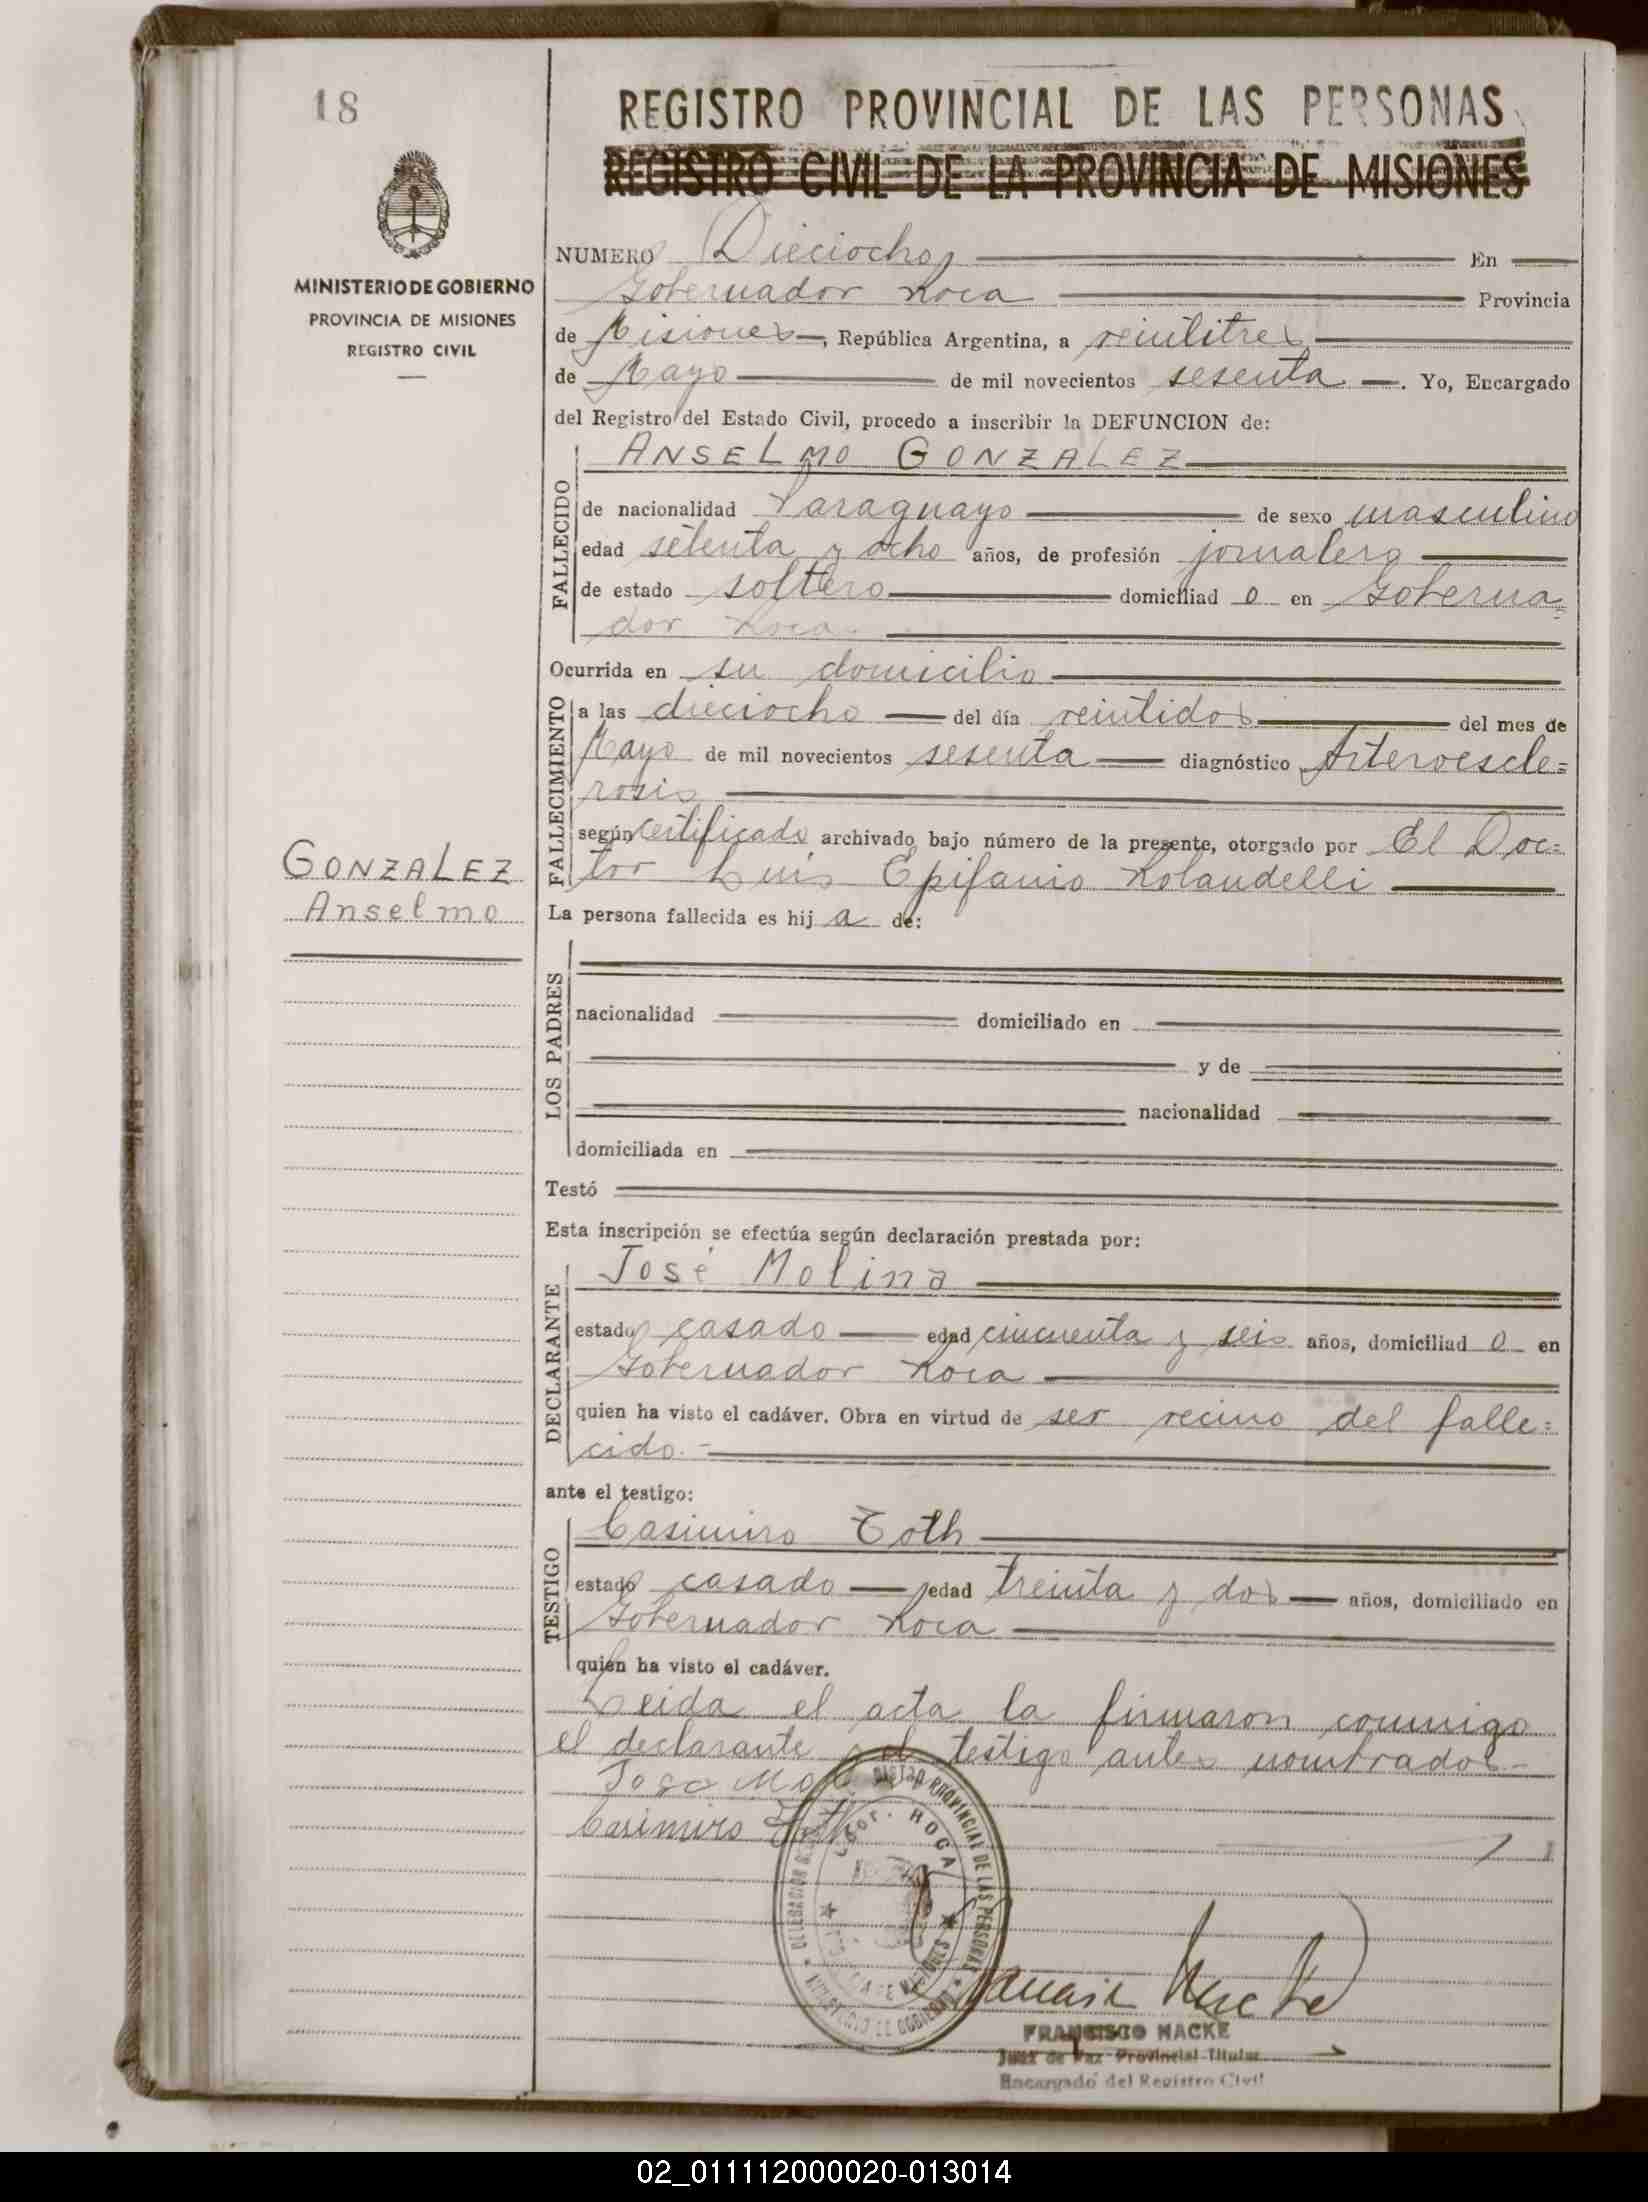 18
MINISTERIO DE GOBIERNO
PROVINCIA DE MISIONES
REGISTRO CIVIL
GONZALEZ
Anselmo
REGISTRO PROVINCIAL DE LAS PERSONAS
REGISTRO CIVIL DE LA PROVINCIA DE MISIONES
NUMERO Dieciocho En
Gobernador Roca Provincia
de Misiones, República Argentina, a veintitres
de Mayo de mil novecientos sesenta. Yo, Encargado
del Registro del Estado Civil, procedo a inscribir la DEFUNCION de:
FALLECIDO
ANSELMO GONZALEZ
de nacionalidad Paraguayo de sexo masculino
edad setenta y ocho años, de profesión jornalero
de estado soltero domiciliad o en Goberna=
dor Roca.
Ocurrida en su domicilio
FALLECIMIENTO
a las dieciocho del día veintidos del mes de
Mayo de mil novecientos sesenta diagnóstico Arteroescle=
rosis
según certificado archivado bajo número de la presente, otorgado por El Doc=
tor Luis Epifanio Rolandelli
La persona fallecida es hij a de:
LOS PADRES
nacionalidad domiciliado en
y de
nacionalidad
domiciliada en
Testó
Esta inscripción se efectúa según declaración prestada por:
DECLARANTE
José Molina
estado casado edad cincuenta y seis años, domiciliad o en
Gobernador Roca
quien ha visto el cadáver. Obra en virtud de ser vecino del falle=
cido.-
ante el testigo:
TESTIGO
Casimiro Toth
estado casado edad treinta y dos años, domiciliado en
Gobernador Roca
quien ha visto el cadáver.
Leida el acta la firmaron conmigo
el declarante y el testigo antes nombrados-
Jose Mol
Casimiro Toth
REGISTRO PROVINCIAL DE LAS PERSONAS
DELEGACION
Gdor. ROCA
MINISTERIO DE GOBIERNO
PROVINCIA DE MISIONES
FRANCISCO HACKE
Juez de Paz Provincial Titular
Encargado del Registro Civil
02_011112000020-013014